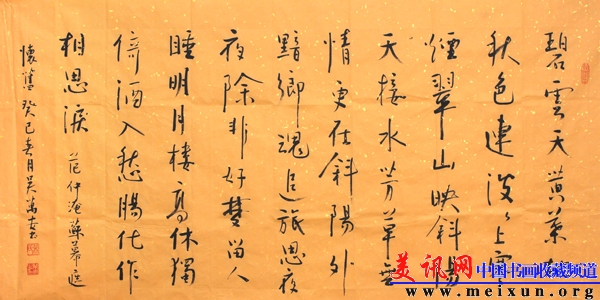 碧雲天黃葉地
秋色連波〻上寒
煙翠山映斜陽
天接水芳草無
情更在斜陽外
黯鄉魂追旅思夜
夜除非好夢留人
睡明月樓高休獨
倚酒入愁腸化作
相思淚 范仲淹蘇幕遮
懷舊 癸巳春月吳
美讯网 中国书画收藏频道
www.meixun.org